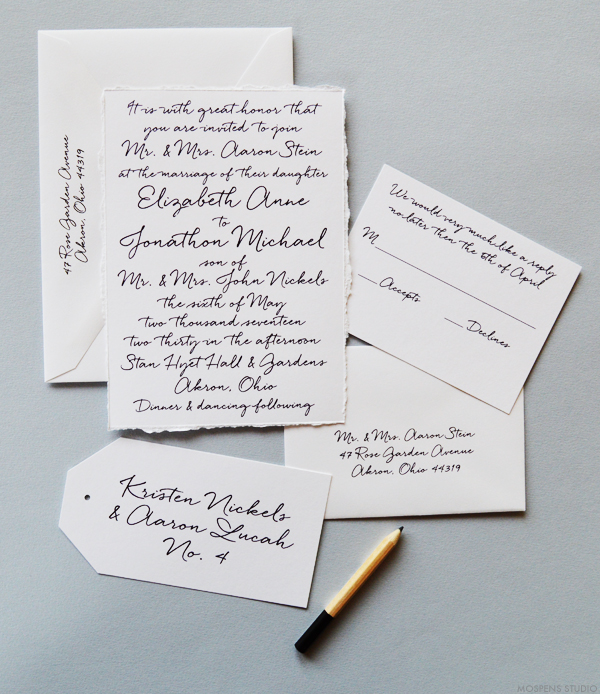 It is with great honor that
you are invited to join
Mr. & Mrs. Aaron Stein
at the marriage of their daughter
Elizabeth Anne
to
Jonathon Michael
son of
Mr. & Mrs. John Nickels
the sixth of May
two thousand seventeen
two thirty in the afternoon
Stan Hyet Hall & Gardens
Akron, Ohio
Dinner & dancing following
47 Rose Garden Avenue
Akron, Ohio 44319
We would very much like a reply
no later then the 6th of April
M
Accepts
Declines
Mr. & Mrs. Aaron Stein
47 Rose Garden Avenue
Akron, Ohio 44319
Kristen Nickels
& Aaron Lucah
No. 4
MOSPENS STUDIO